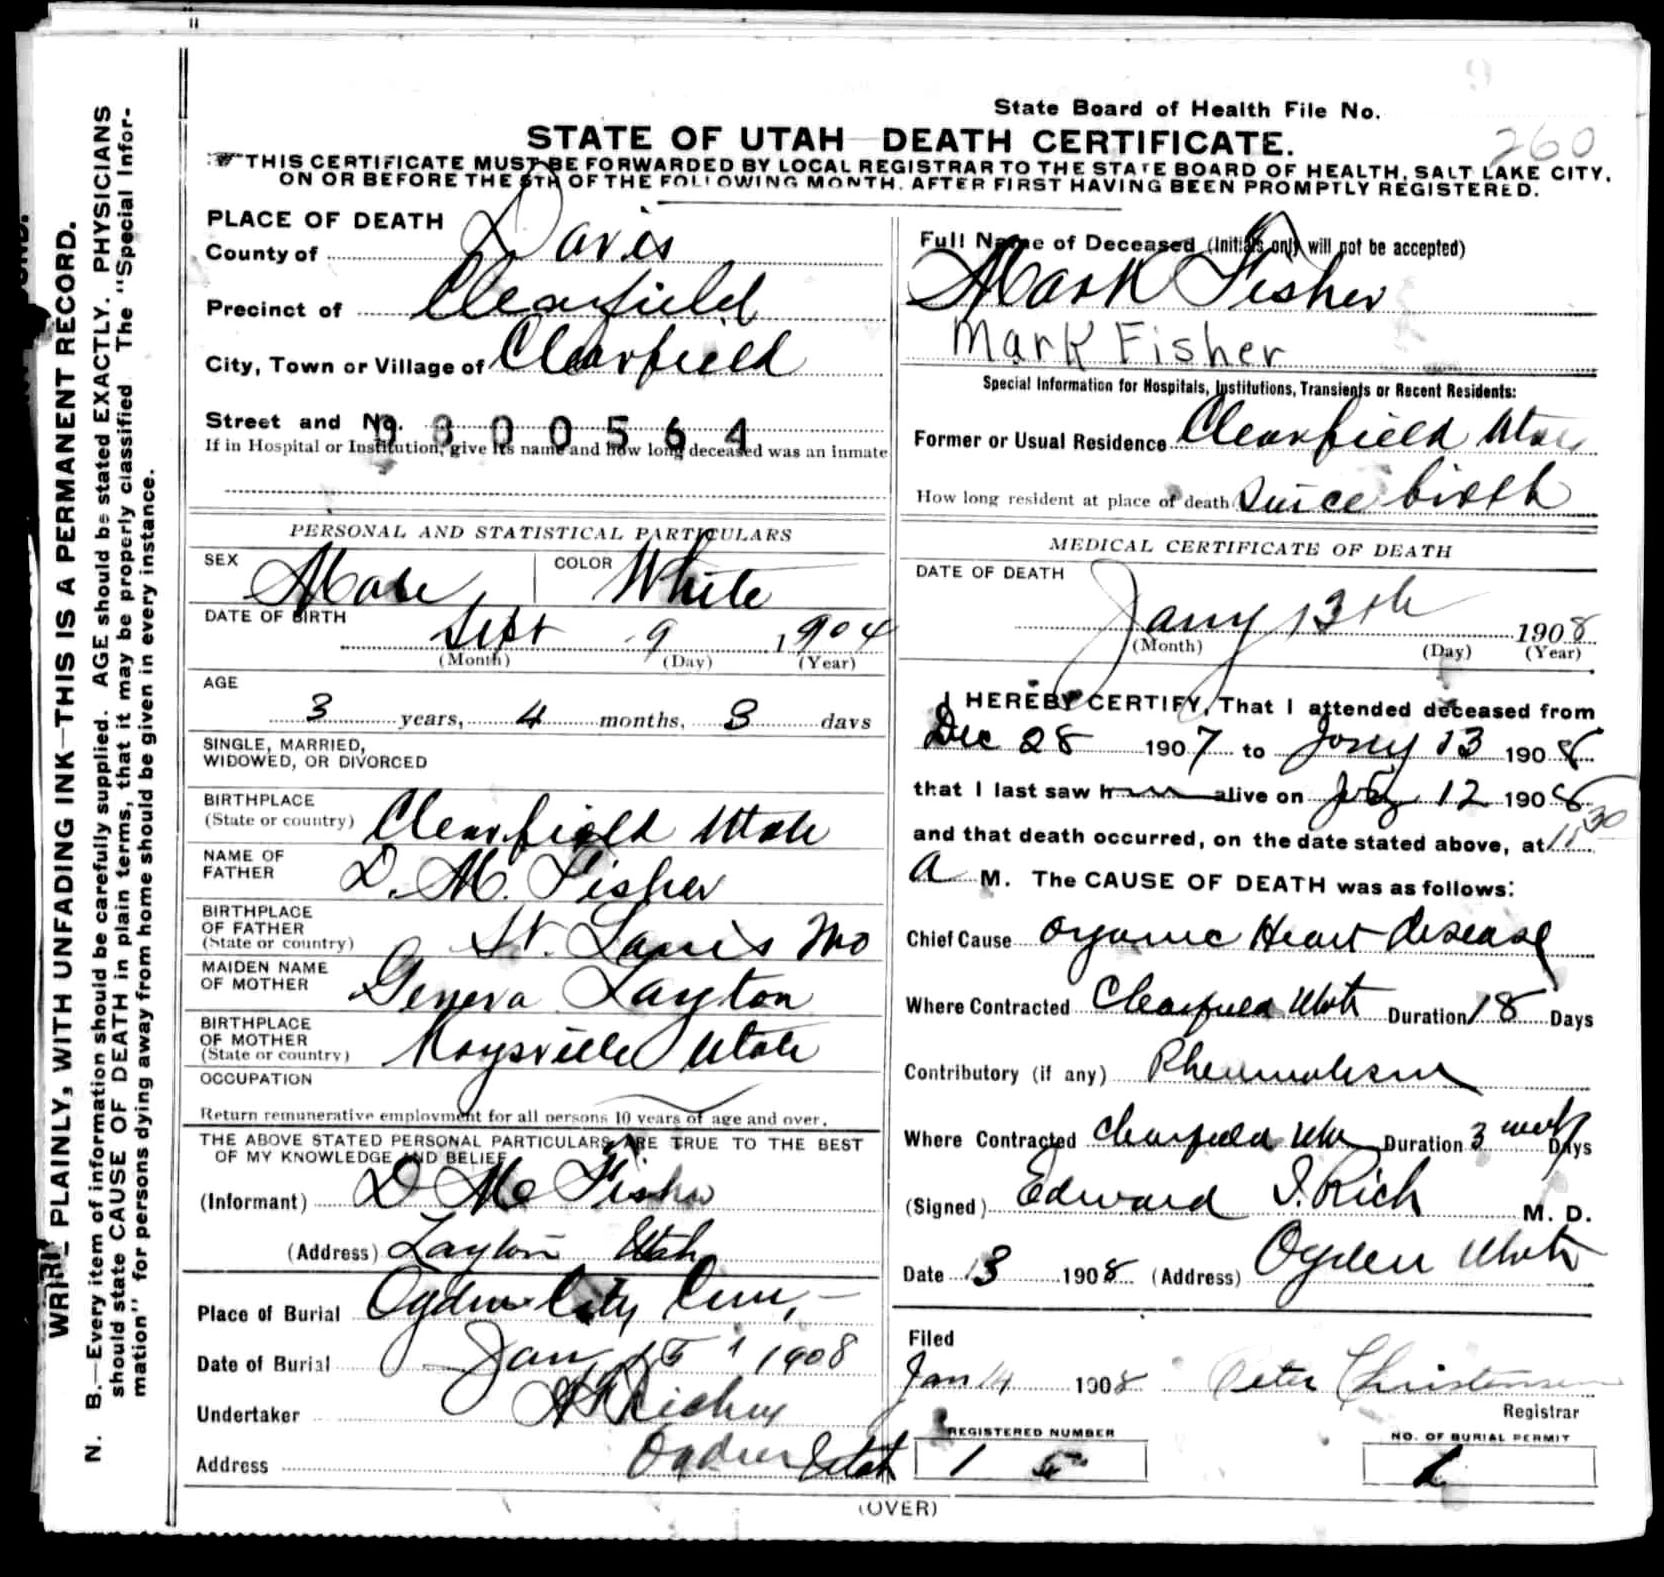 State Board of Health File No.
260
STATE OF UTAH—DEATH CERTIFICATE.
THIS CERTIFICATE MUST BE FORWARDED BY LOCAL REGISTRAR TO THE STATE BOARD OF HEALTH, SALT LAKE CITY,
ON OR BEFORE THE 5TH OF THE FOLLOWING MONTH, AFTER FIRST HAVING BEEN PROMPTLY REGISTERED.
WRITE PLAINLY, WITH UNFADING INK—THIS IS A PERMANENT RECORD.
N. B.—Every item of information should be carefully supplied. AGE should be stated EXACTLY. PHYSICIANS
should state CAUSE OF DEATH in plain terms, that it may be properly classified. The "Special Infor-
mation" for persons dying away from home should be given in every instance.
PLACE OF DEATH
County of Davis
Precinct of Clearfield
City, Town or Village of Clearfield
Street and No.
0800564
If in Hospital or Institution, give its name and how long deceased was an inmate
PERSONAL AND STATISTICAL PARTICULARS
SEX Male COLOR White
DATE OF BIRTH Sept 9 1904
(Month) (Day) (Year)
AGE
3 years, 4 months, 3 days
SINGLE, MARRIED,
WIDOWED, OR DIVORCED
BIRTHPLACE
(State or country) Clearfield Utah
NAME OF
FATHER D. M. Fisher
BIRTHPLACE
OF FATHER
(State or country) St. Louis Mo
MAIDEN NAME
OF MOTHER Geneva Layton
BIRTHPLACE
OF MOTHER
(State or country) Kaysville Utah
OCCUPATION
Return remunerative employment for all persons 10 years of age and over.
THE ABOVE STATED PERSONAL PARTICULARS ARE TRUE TO THE BEST
OF MY KNOWLEDGE AND BELIEF
(Informant) D M Fisher
(Address) Layton Utah
Place of Burial Ogden City Cem,
Date of Burial Jan 15 1908
Undertaker
Address Ogden Utah
Full Name of Deceased (Initials only will not be accepted)
Mark Fisher
Mark Fisher
Special Information for Hospitals, Institutions, Transients or Recent Residents:
Former or Usual Residence Clearfield Utah
How long resident at place of death Since birth
MEDICAL CERTIFICATE OF DEATH
DATE OF DEATH
Jany 13th 1908
(Month) (Day) (Year)
I HEREBY CERTIFY, That I attended deceased from
Dec 28 1907 to Jany 13 1908
that I last saw him alive on Jany 12 1908
and that death occurred, on the date stated above, at 11 30
A M. The CAUSE OF DEATH was as follows:
Chief Cause Organic Heart disease
Where Contracted Clearfield Utah Duration 18 Days
Contributory (if any) Rheumatism
Where Contracted Clearfield Utah Duration 3 weeks Days
(Signed) Edward I. Rich M. D.
Date 13 1908 (Address) Ogden Utah
Filed
Jan 14 1908 Peter Christensen
Registrar
REGISTERED NUMBER
1
NO. OF BURIAL PERMIT
1
(OVER)